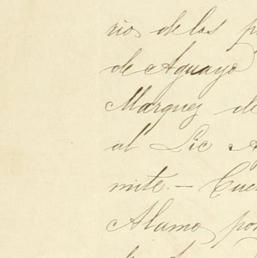 rios de los p
de Aguayo
Marquez de
al Lic A
mite.— Cua
Alamo por